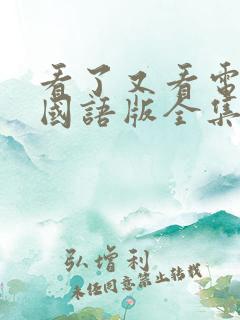 看了又看電
國語版全集
弘增利
未经同意禁止转载